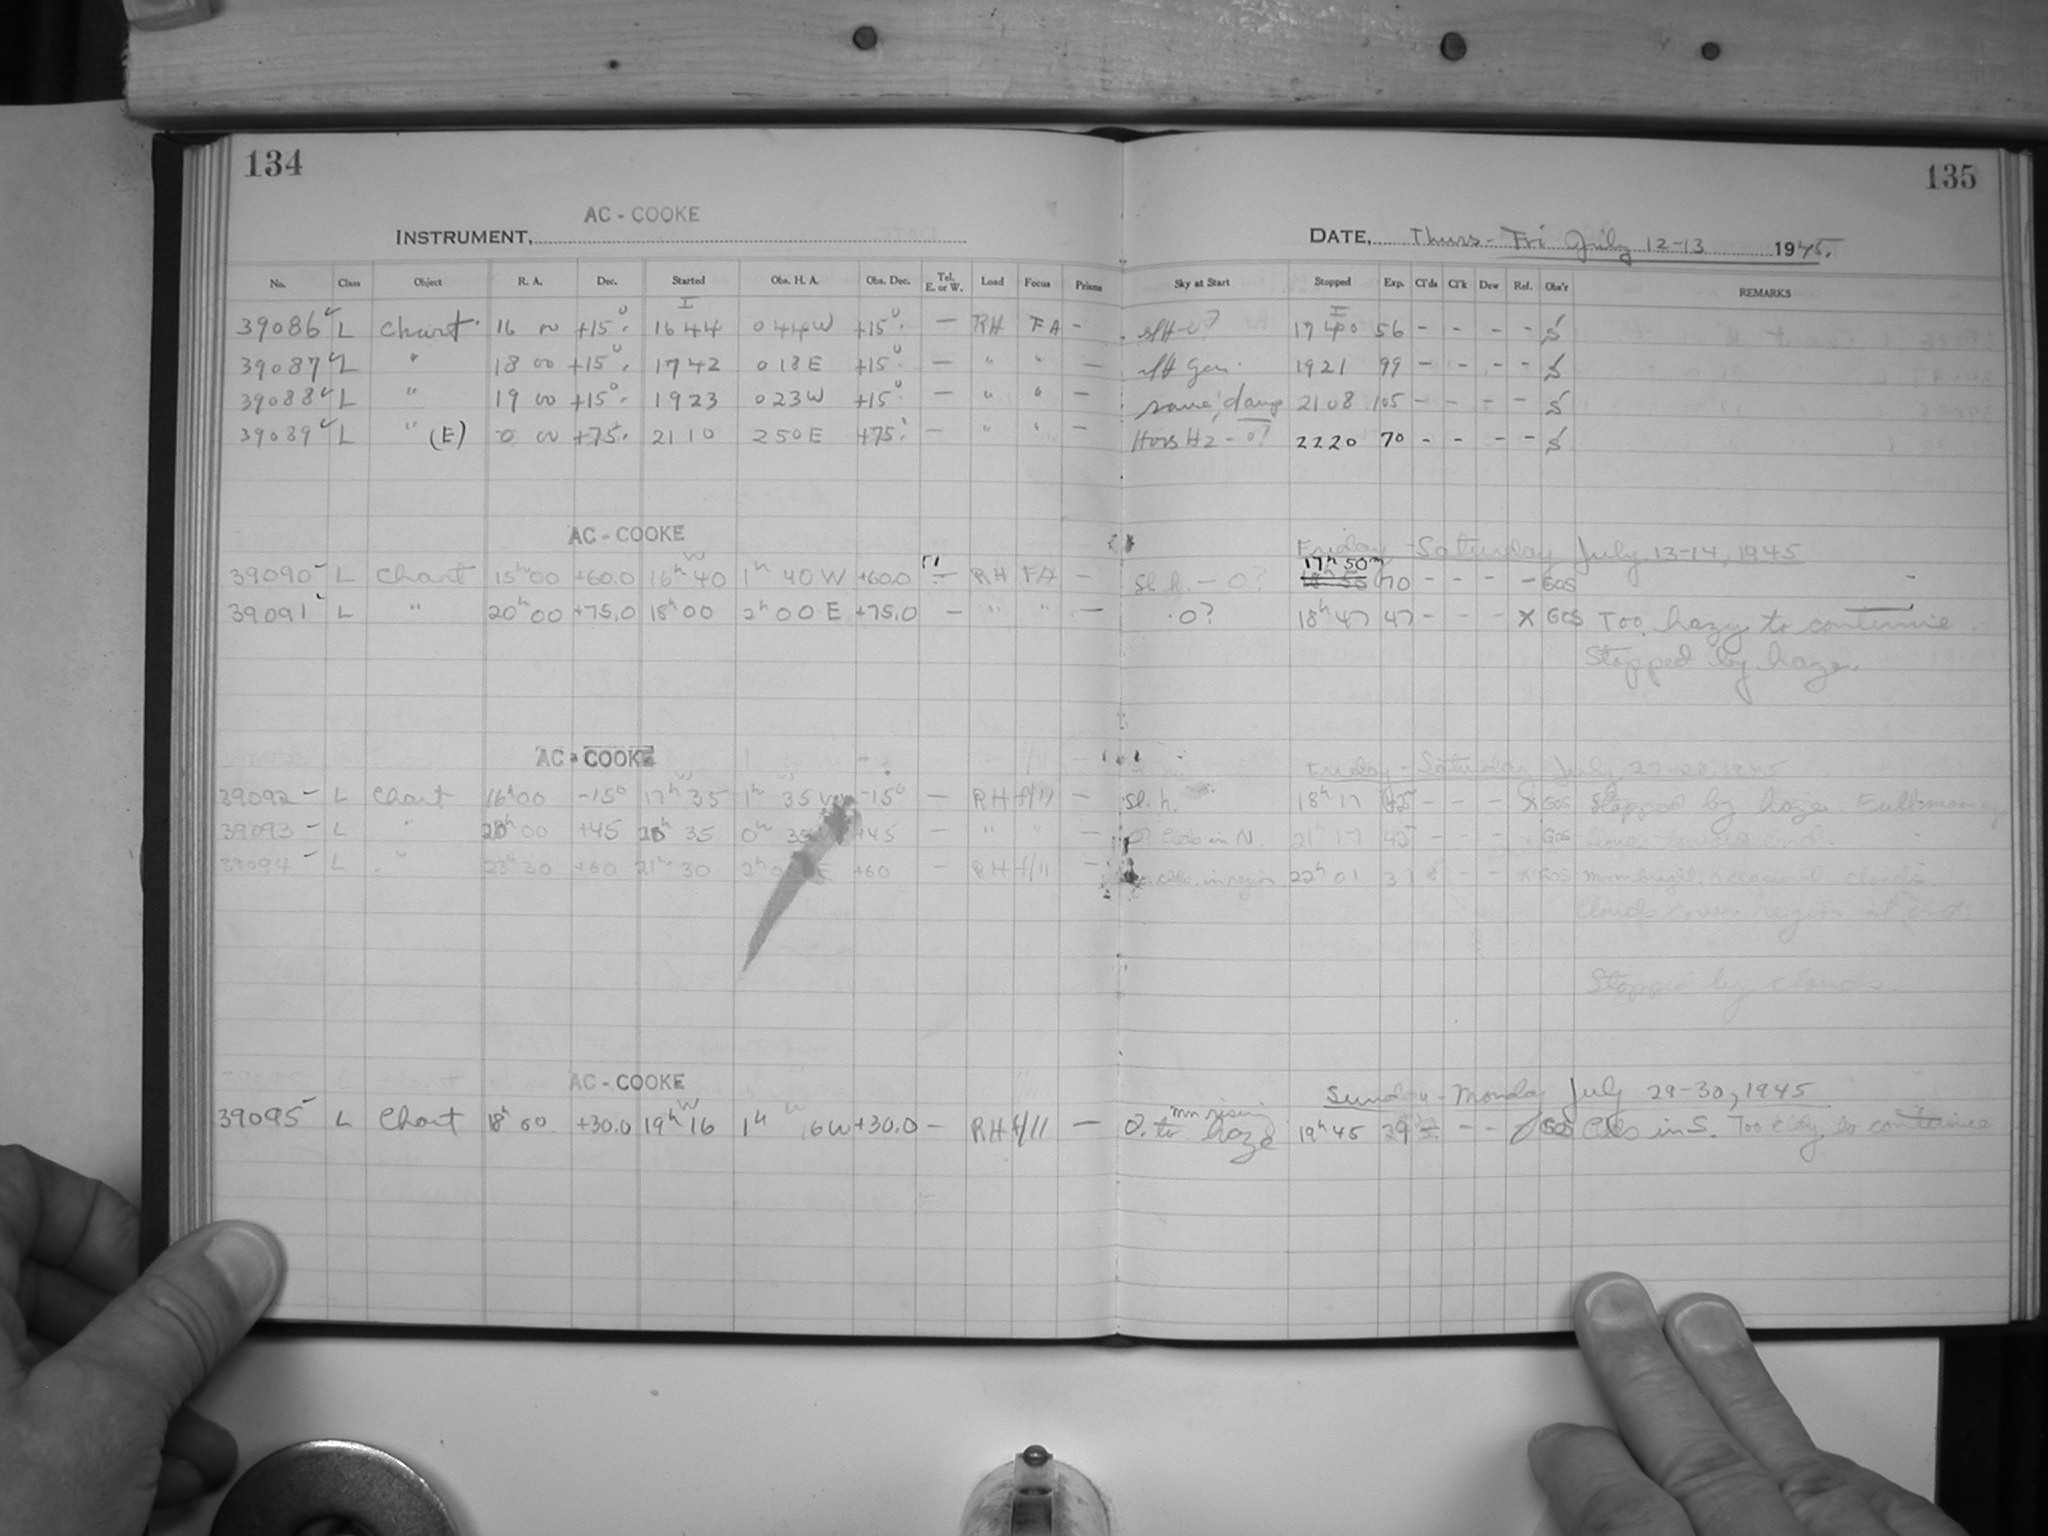 134
135
AC - COOKE
INSTRUMENT,
DATE, Thurs - Fri July 12-13 1945.
No. Class Object R. A. Dec. Started Obs. H. A. Obs. Dec. Tel. E. or W. Load Focus Prisms Sky at Start Stopped Exp. Cl'ds Cl'k Dew Ref. Obs'r REMARKS
39086 L Chart 16 00 +15° 1644 0 44 W +15° - RH FA - 1740 56 - - - - S
39087 L " 18 00 +15° 1742 0 18 E +15° - " " - 1921 99 - - - - S
39088 L " 19 00 +15° 1923 0 23 W +15° - " " - same, damp 2108 105 - - - - S
39089 L " (E) 0 00 +75. 2110 2 50 E +75. - " " - 2220 70 - - - - S
AC - COOKE
Friday - Saturday July 13-14, 1945
39090 L Chart 15h 00 +60.0 16h 40 1h 40 W +60.0 - RH FA - Sl. h. - 0? 17h 50m 70 - - - - GOS
39091 L " 20h 00 +75.0 18h 00 2h 00 E +75.0 - " " - 0? 18h 47 47 - - - x GOS Too hazy to continue.
Stopped by haze.
AC - COOKE
Friday - Saturday July 27-28, 1945
39092 L Chart 16h 00 -15° 17h 35 1h 35 W -15° - RH f/11 - Sl. h. 18h 17 42 - - - x GOS Stopped by haze. Full moon
39093 L " 20h 00 +45 20h 35 0h 35 +45 - " " - in N. 21h 17 42 - - - x GOS
39094 L " 23h 30 +60 21h 30 2h 0 E +60 - RH f/11 - in region 22h 01 31 - - x GOS Moon bright. clouds.
Clouds cover region at end.
Stopped by clouds.
AC - COOKE
Sunday - Monday July 29-30, 1945
39095 L Chart 18h 00 +30.0 19h 16 1h 16 W +30.0 - RH f/11 - 0. mn rising haze 19h 45 29 - - GOS Clds in S. Too cldy to continue